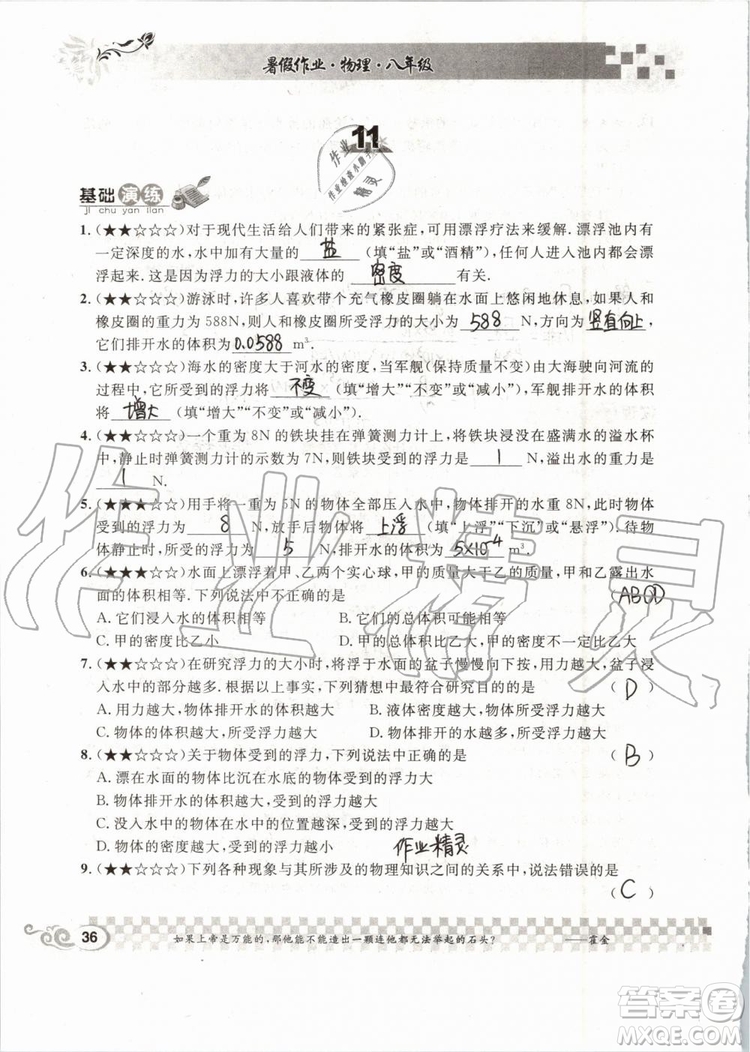 暑假作业·物理·八年级
11
作业
作业检查小助手
精灵
基础演练
ji chu yan lian
1.(★★☆☆☆)对于现代生活给人们带来的紧张症,可用漂浮疗法来缓解.漂浮池内有
一定深度的水,水中加有大量的 盐 (填“盐”或“酒精”),任何人进入池中都会漂
浮起来.这是因为浮力的大小跟液体的 密度 有关.
2.(★★☆☆☆)游泳时,许多人喜欢靠一个充气橡皮圈躺在水面上悠闲地休息,如果人和
橡皮圈的重力为588N,则人和橡皮圈所受浮力的大小为 588 N,方向为 竖直向上,
它们排开水的体积为 0.0588 m³.
3.(★★☆☆☆)海水的密度大于河水的密度,当军舰(保持质量不变)由大海驶向河流的
过程中,它受到的浮力将 不变 (填“增大”“不变”或“减小”),军舰排开水的体积
将 增大 (填“增大”“不变”或“减小”).
4.(★★☆☆☆)一个重为8N的铁块挂在弹簧测力计上,将铁块浸没在盛满水的溢水杯
中,静止时弹簧测力计的示数为7N,则铁块受到的浮力为 1 N,溢出水的重力为
1 N.
5.(★★☆☆☆)用手将一重为5N的物体全部压入水中,物体排开的水重8N,此时物体
受到的浮力为 8 N,放手后物体将 上浮 (填“上浮”“下沉”或“悬浮”).待物
体静止时,所受浮力为 5 N,排开水的体积为 5×10⁻⁴ m³.
6.(★★☆☆☆)水面上漂浮着甲、乙两个实心球,甲的质量大于乙的质量,甲和乙露出水
面的体积相等,则 ABCD
A.它们浸入水的体积相等 B.它们的总体积可能相等
C.甲的密度比乙小 D.甲的总体积比乙大,甲的密度不一定比乙大
7.(★★☆☆☆)在研究浮力的大小时,将浮于水面的盆子慢慢向下按,用力越大,盆子浸
入水中的部分越多.根据以上事实,下列猜想中符合研究目的的是 ( D )
A.用力越大,物体排开水的体积越大 B.液体密度越大,物体所受浮力越大
C.用力越大,物体所受浮力越大 D.物体排开水越多,所受浮力越大
8.(★★☆☆☆)关于物体受到的浮力,下列说法中正确的是 ( B )
A.漂在水面的物体比沉在水底的物体受到的浮力大
B.物体排开水的体积越大,受到的浮力越大
C.没入水中的物体在水中的位置越深,受到的浮力越大
D.物体的密度越大,受到的浮力越小
作业精灵
9.(★★☆☆☆)下列各种现象与其所涉及的物理知识之间的关系中,说法错误的是
( C )
36
如果上帝是万能的,那他能不能造出一颗连他都无法举起的石头? ——霍金
作业精灵
答案卷
MXQE.COM